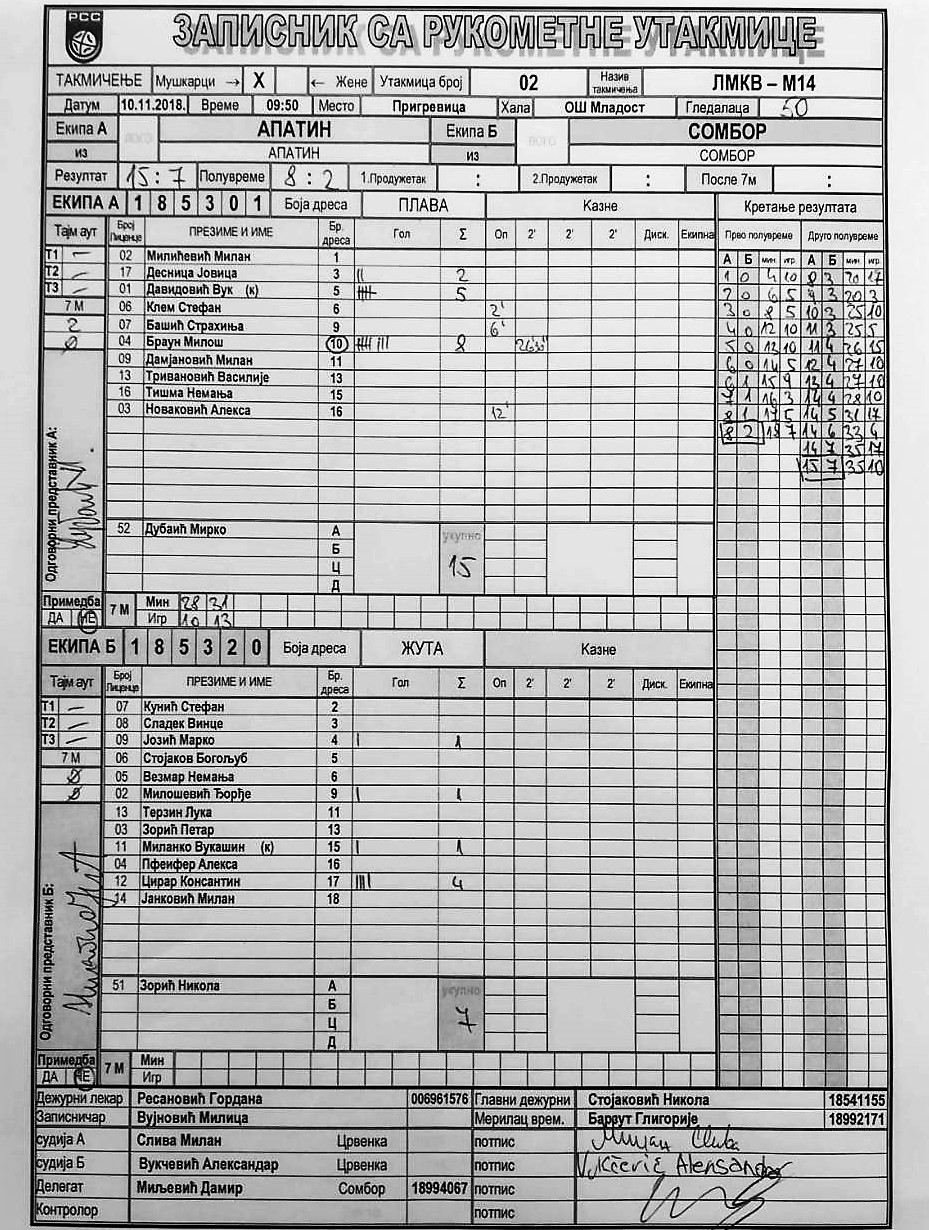 РСС ЗАПИСНИК СА РУКОМЕТНЕ УТАКМИЦЕ
ТАКМИЧЕЊЕ Мушкарци → X ← Жене Утакмица број 02 Назив такмичења ЛМКВ – М14
Датум 10.11.2018. Време 09:50 Место Пригревица Хала ОШ Младост Гледалаца 50
Екипа А АПАТИН Екипа Б СОМБОР
из АПАТИН из СОМБОР
Резултат 15:7 Полувреме 8:2 1.Продужетак : 2.Продужетак : После 7м :
ЕКИПА А 1 8 5 3 0 1 Боја дреса ПЛАВА Казне Кретање резултата
Тајм аут Број Лиценце ПРЕЗИМЕ И ИМЕ Бр. дреса Гол Σ Оп 2' 2' 2' Диск. Екипна Прво полувреме Друго полувреме
А Б мин игр. А Б мин игр.
Т1 – 02 Милићевић Милан 1
1 0 4 10 8 3 20 17
Т2 – 17 Десница Јовица 3 || 2
2 0 6 5 9 3 20 3
Т3 – 01 Давидовић Вук (к) 5 5
3 0 8 5 10 3 25 10
7 М 06 Клем Стефан 6 2'
4 0 12 10 11 3 25 5
2 07 Башић Страхиња 9 6'
5 0 13 10 11 4 26 15
0 04 Браун Милош 10 8
6 0 14 5 12 4 27 10
09 Дамјановић Милан 11
6 1 15 9 13 4 27 10
13 Тривановић Василије 13
7 1 16 3 14 4 28 10
16 Тишма Немања 15
8 1 17 5 14 5 31 17
03 Новаковић Алекса 16 12'
8 2 18 7 14 6 33 4
14 7 35 17
15 7 35 10
Одговорни представник А:
52 Дубаић Мирко А укупно
Б
Ц 15
Д
Примедба 7 М Мин 28 31
ДА НЕ Игр 10 13
ЕКИПА Б 1 8 5 3 2 0 Боја дреса ЖУТА Казне
Тајм аут Број Лиценце ПРЕЗИМЕ И ИМЕ Бр. дреса Гол Σ Оп 2' 2' 2' Диск. Екипна
Т1 – 07 Кунић Стефан 2
Т2 – 08 Сладек Винце 3
Т3 – 09 Јозић Марко 4 | 1
7 М 06 Стојаков Богољуб 5
0 05 Везмар Немања 6
0 02 Милошевић Ђорђе 9 | 1
13 Терзин Лука 11
03 Зорић Петар 13
11 Миланко Вукашин (к) 15 | 1
04 Пфеифер Алекса 16
12 Цирар Консантин 17 |||| 4
14 Јанковић Милан 18
Одговорни представник Б:
51 Зорић Никола А укупно
Б
Ц 7
Д
Примедба 7 М Мин
ДА НЕ Игр
Дежурни лекар Ресановић Гордана 006961576 Главни дежурни Стојаковић Никола 18541155
Записничар Вујновић Милица Мерилац врем. Барвут Глигорије 18992171
судија А Слива Милан Црвенка потпис
судија Б Вукчевић Александар Црвенка потпис Vukčević Aleksandar
Делегат Миљевић Дамир Сомбор 18994067 потпис
Контролор потпис